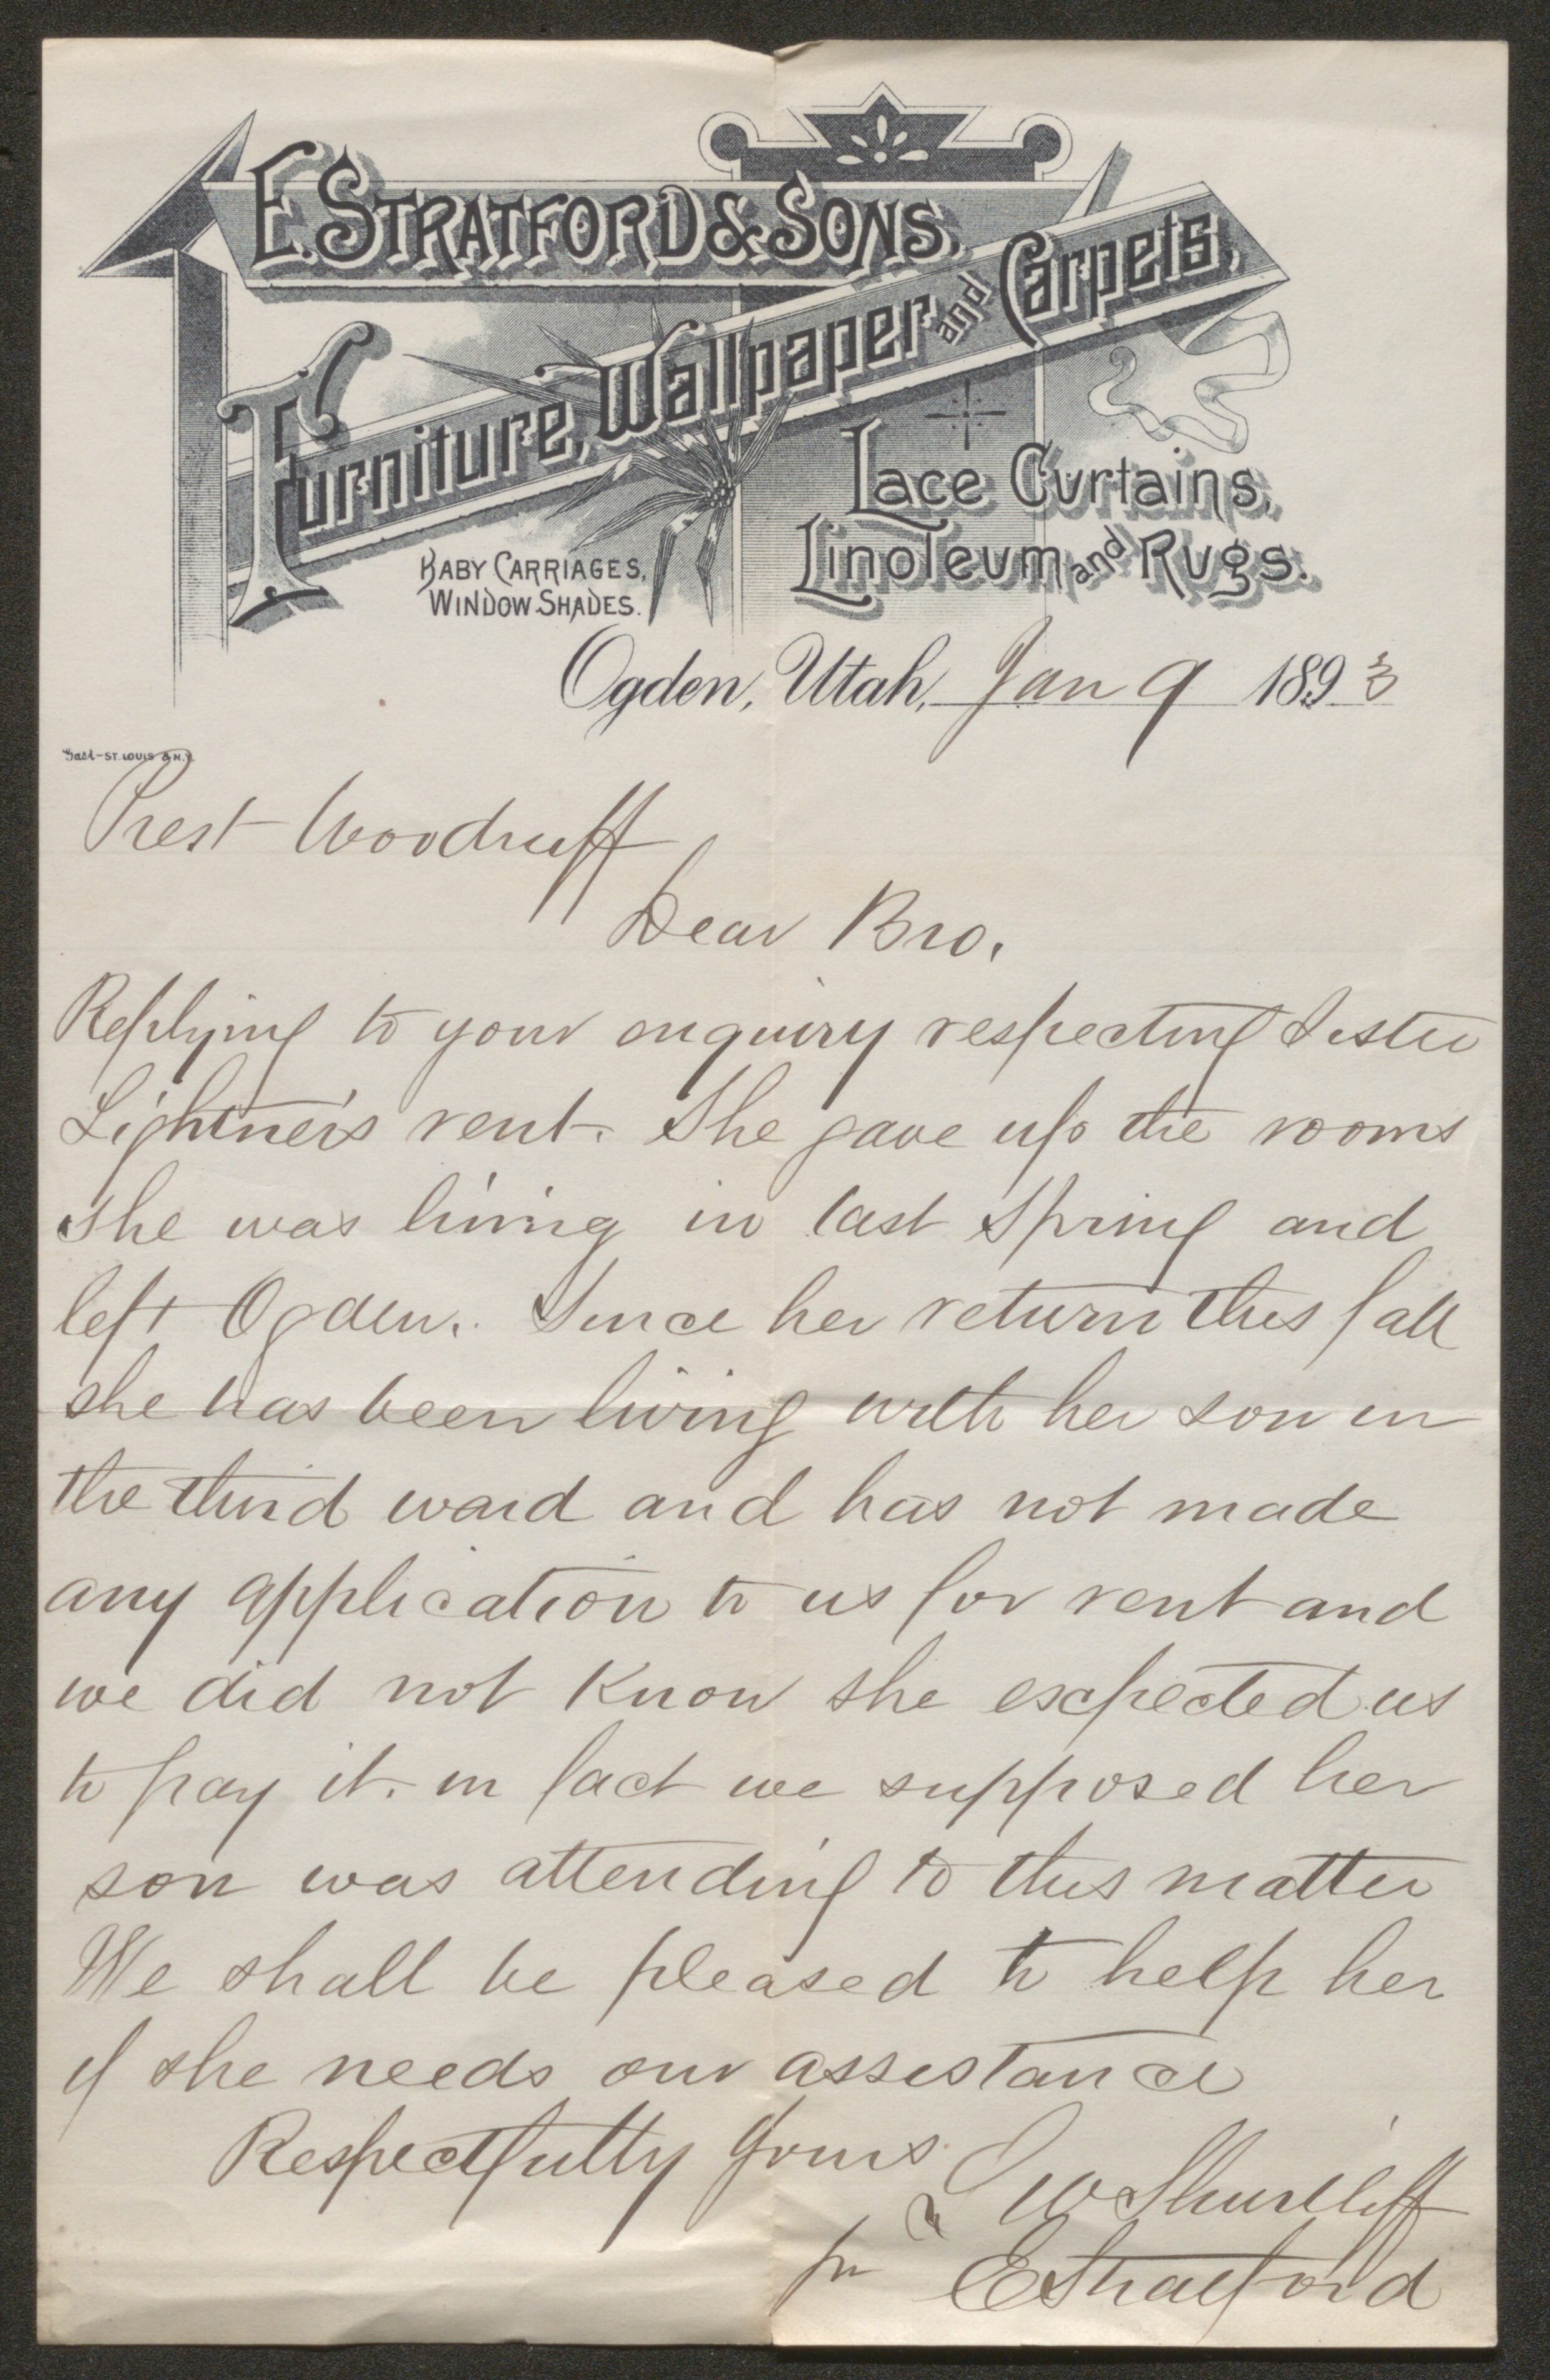 E. STRATFORD & SONS.
Furniture, Wallpaper and Carpets,
Lace Curtains,
Linoleum and Rugs.
BABY CARRIAGES,
WINDOW SHADES.
Ogden, Utah, Jan 9 1893
Gast-ST. LOUIS & N.Y.
Prest Woodruff
Dear Bro.
Replying to your enquiry respecting Sister
Lightner's rent. She gave up the rooms
she was living in last Spring and
left Ogden. Since her return this fall
she has been living with her son in
the third ward and has not made
any application to us for rent and
we did not know she expected us
to pay it. in fact we supposed her
son was attending to this matter
We shall be pleased to help her
if she needs our assistance
Respectfully Yours
L W Shurtliff
pr E Stratford